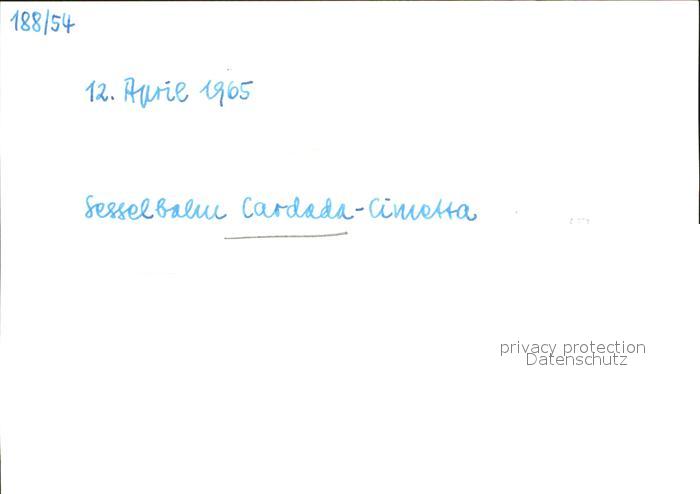 188/54
12. April 1965
Sesselbahn Cardada-Cimetta
privacy protection
Datenschutz